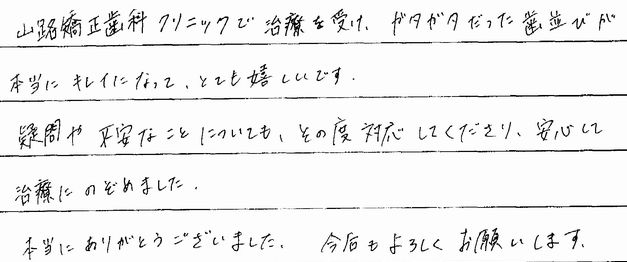 山路矯正歯科クリニックで治療を受け、ガタガタだった歯並びが
本当にキレイになって、とても嬉しいです。
疑問や不安なことについても、その度対応してくださり、安心して
治療にのぞめました。
本当にありがとうございました。 今后もよろしくお願いします。